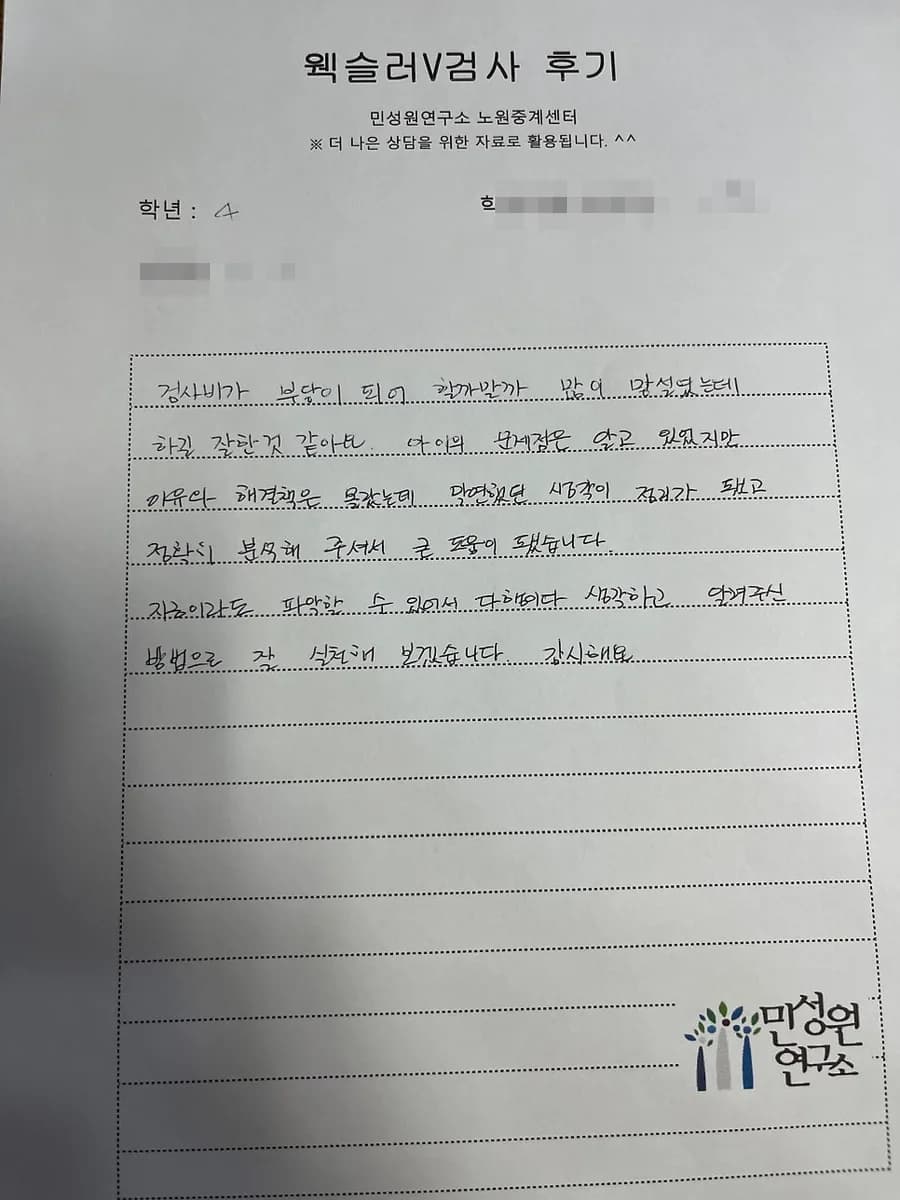 웩슬러V검사 후기
민성원연구소 노원중계센터
※ 더 나은 상담을 위한 자료로 활용됩니다. ^^
학년 : 4
검사비가 부담이 되어 할까말까 많이 망설였는데
하길 잘한것 같아요. 아이의 문제점은 알고 있었지만
이유와 해결책은 몰랐는데 막연했던 생각이 정리가 됐고
정확히 분석해 주셔서 큰 도움이 됐습니다.
지금이라도 파악할 수 있어서 다행이다 생각하고 알려주신
방법으로 잘 실천해 보겠습니다. 감사해요
민성원
연구소